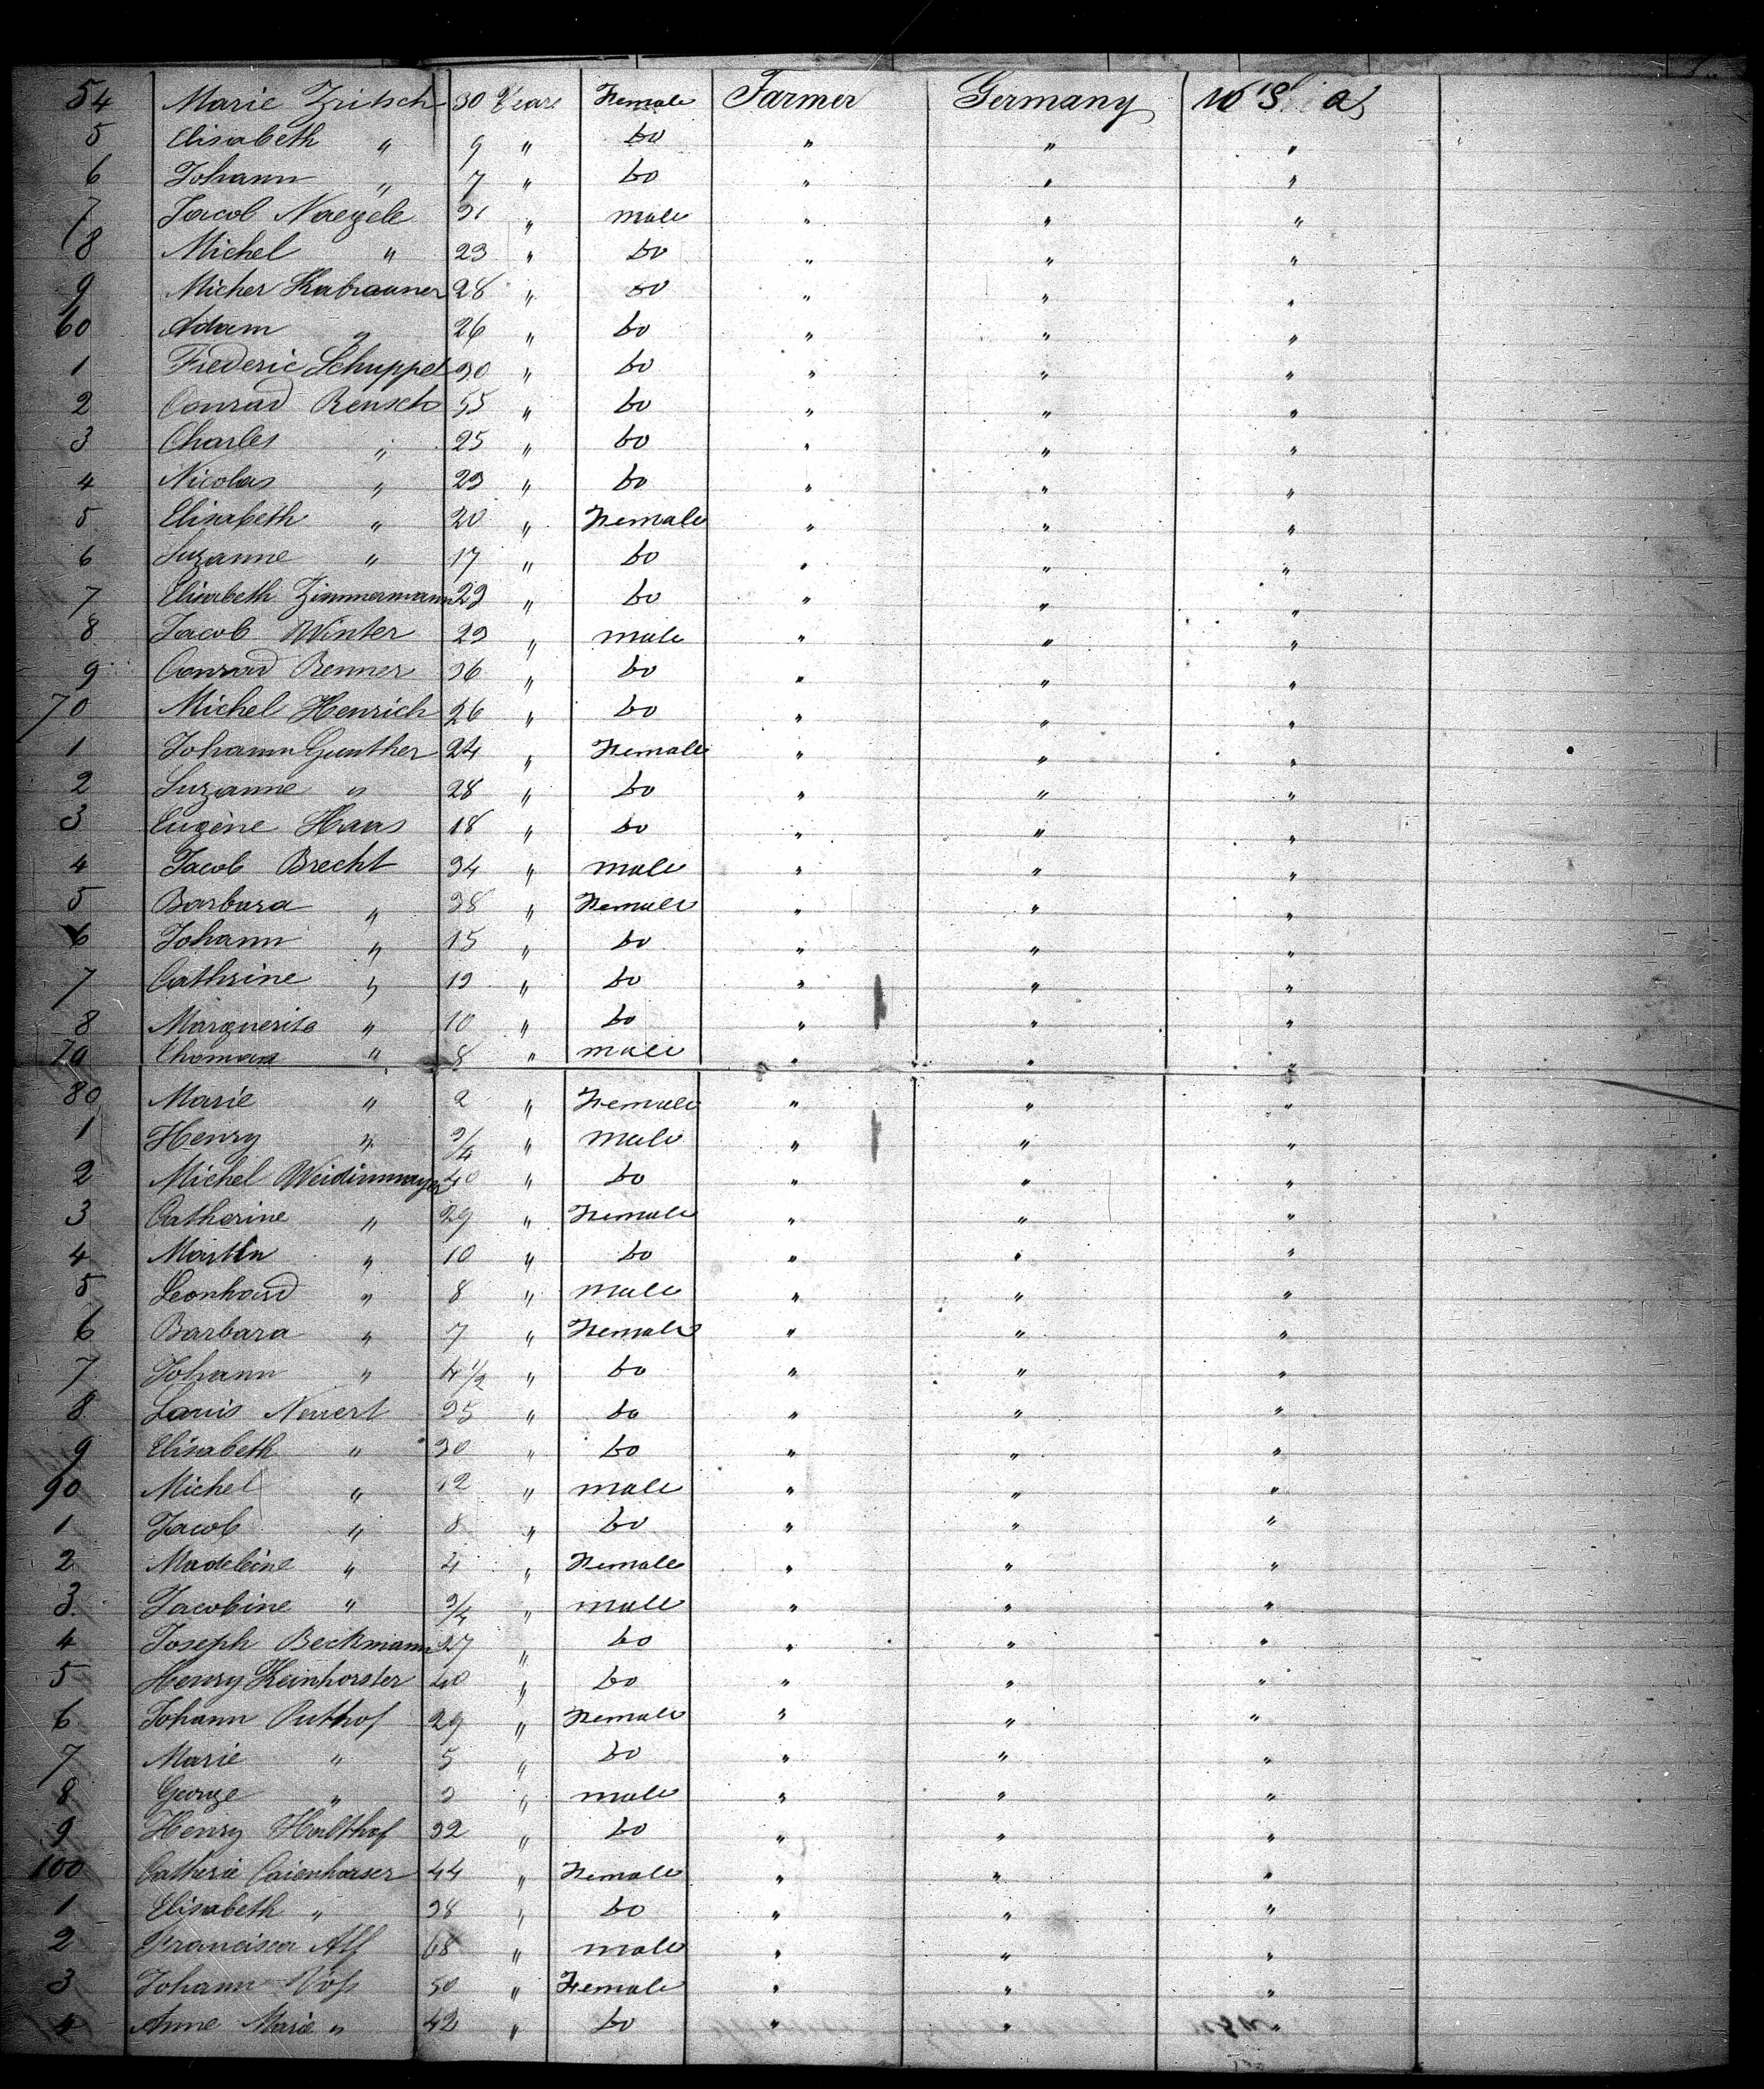 54 Marie Zritsch 30 Years Female Farmer Germany U S a
5 Elisabeth " 9 " do " " "
6 Johann " 7 " do " " "
7 Jacob Naegele 31 " male " " "
8 Michel " 23 " do " " "
9 Micher Kabrauner 28 " do " " "
60 Adam " 26 " do " " "
1 Frederic Schuppel 30 " do " " "
2 Conrad Rensch 55 " do " " "
3 Charles " 25 " do " " "
4 Nicolas " 23 " do " " "
5 Elisabeth " 20 " Female " " "
6 Suzanne " 17 " do " " "
7 Elisabeth Zimmermann 23 " do " " "
8 Jacob Winter 23 " male " " "
9 Conrad Renner 36 " do " " "
70 Michel Henrich 26 " do " " "
1 Johann Gunther 24 " Female " " "
2 Suzanne " 28 " do " " "
3 Eugène Haas 18 " do " " "
4 Jacob Brecht 34 " male " " "
5 Barbara " 38 " Female " " "
6 Johann " 15 " do " " "
7 Cathrine " 13 " do " " "
8 Marguerite " 10 " do " " "
79 Thomas " 8 " male " " "
80 Marie " 2 " Female " " "
1 Henry " 3/4 " male " " "
2 Michel Weidinmayer 40 " do " " "
3 Catherine " 29 " Female " " "
4 Martin " 10 " do " " "
5 Leonhard " 8 " male " " "
6 Barbara " 7 " Female " " "
7 Johann " 4 1/2 " do " " "
8 Louis Neuert 35 " do " " "
9 Elisabeth " 30 " do " " "
90 Michel " 12 " male " " "
1 Jacob " 8 " do " " "
2 Madeleine " 4 " Female " " "
3 Jacobine " 3/4 " male " " "
4 Joseph Beckmann 27 " do " " "
5 Henry Keinhorster 40 " do " " "
6 Johann Puthof 29 " Female " " "
7 Marie " 5 " do " " "
8 George " 3 " male " " "
9 Henry Holthof 32 " do " " "
100 Catherie Caienhorser 44 " Female " " "
1 Elisabeth " 38 " do " " "
2 Francisca Alf 68 " male " " "
3 Johann Voß 50 " Female " " "
4 Anne Marie " 42 " do " " "